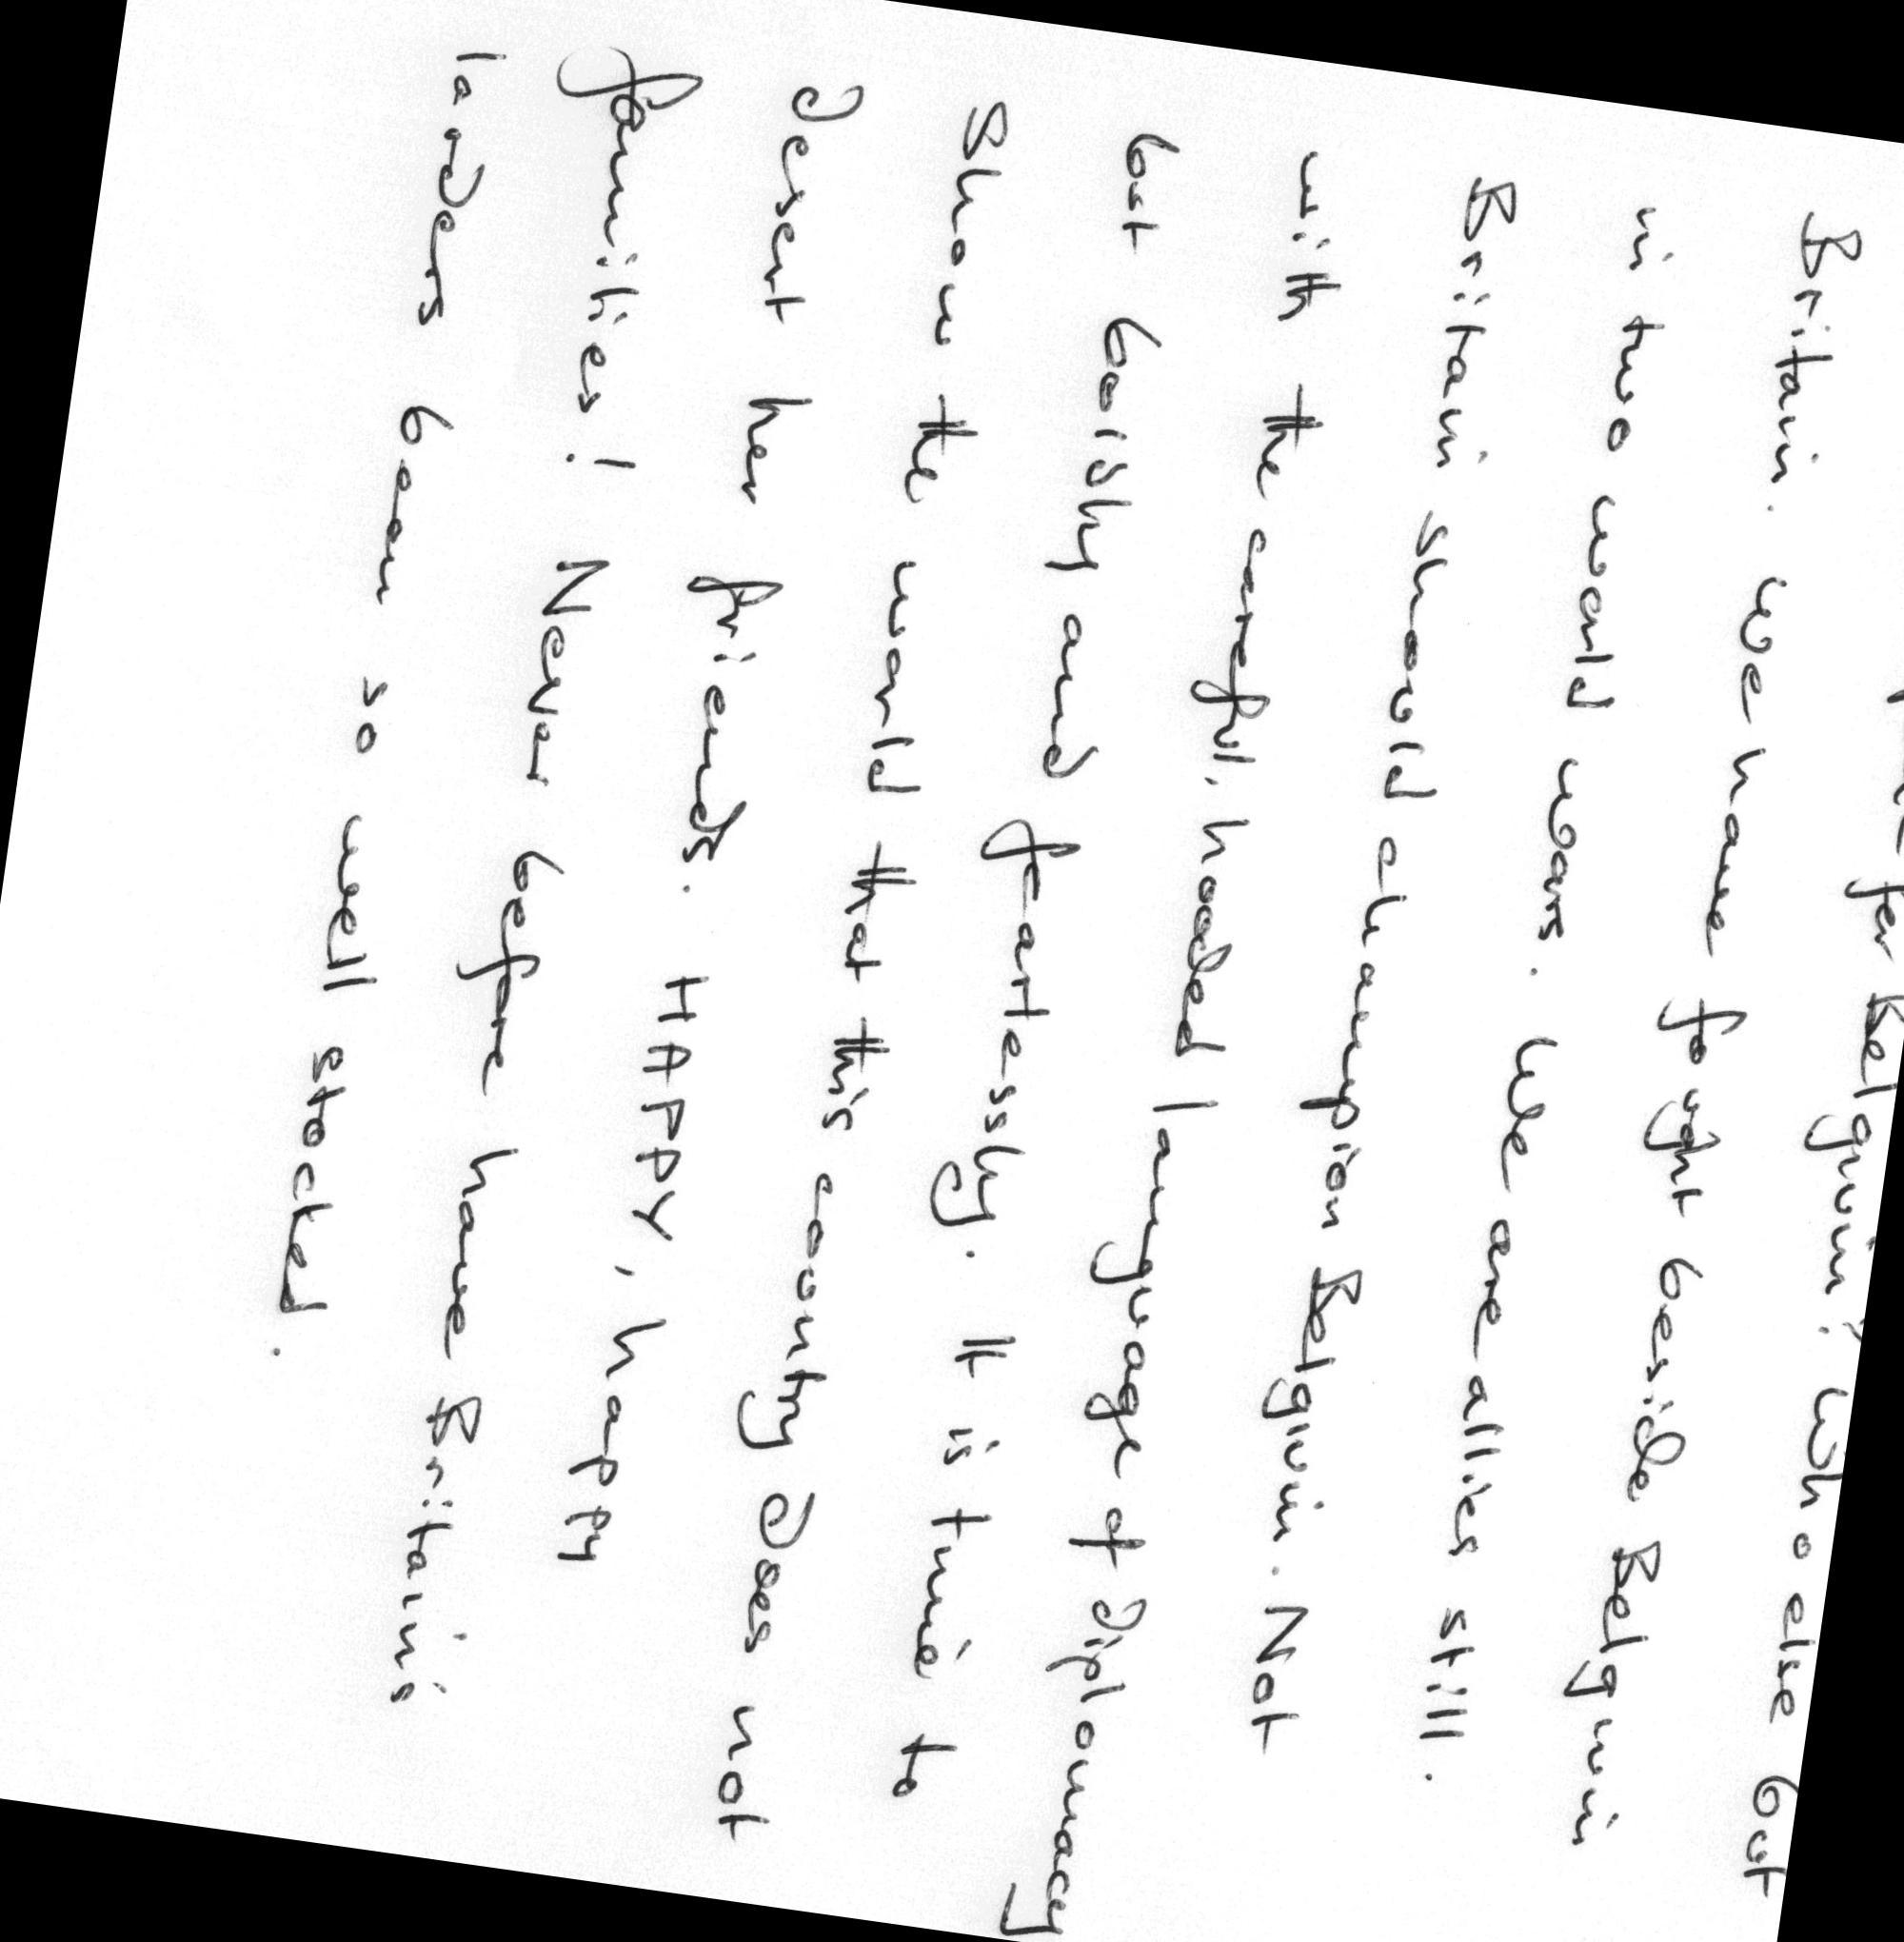 for Belguim? Who else but
Britain. We have fought beside Belguim
in two world wars. We are allies still.
Britain should champion Belguim. Not
with the careful, hooded language of diplomacy
but boldly and fearlessly. It is time to
show the world that this country does not
desert her friends. HAPPY, happy
families! Never before have Britain's
ladders been so well stocked.